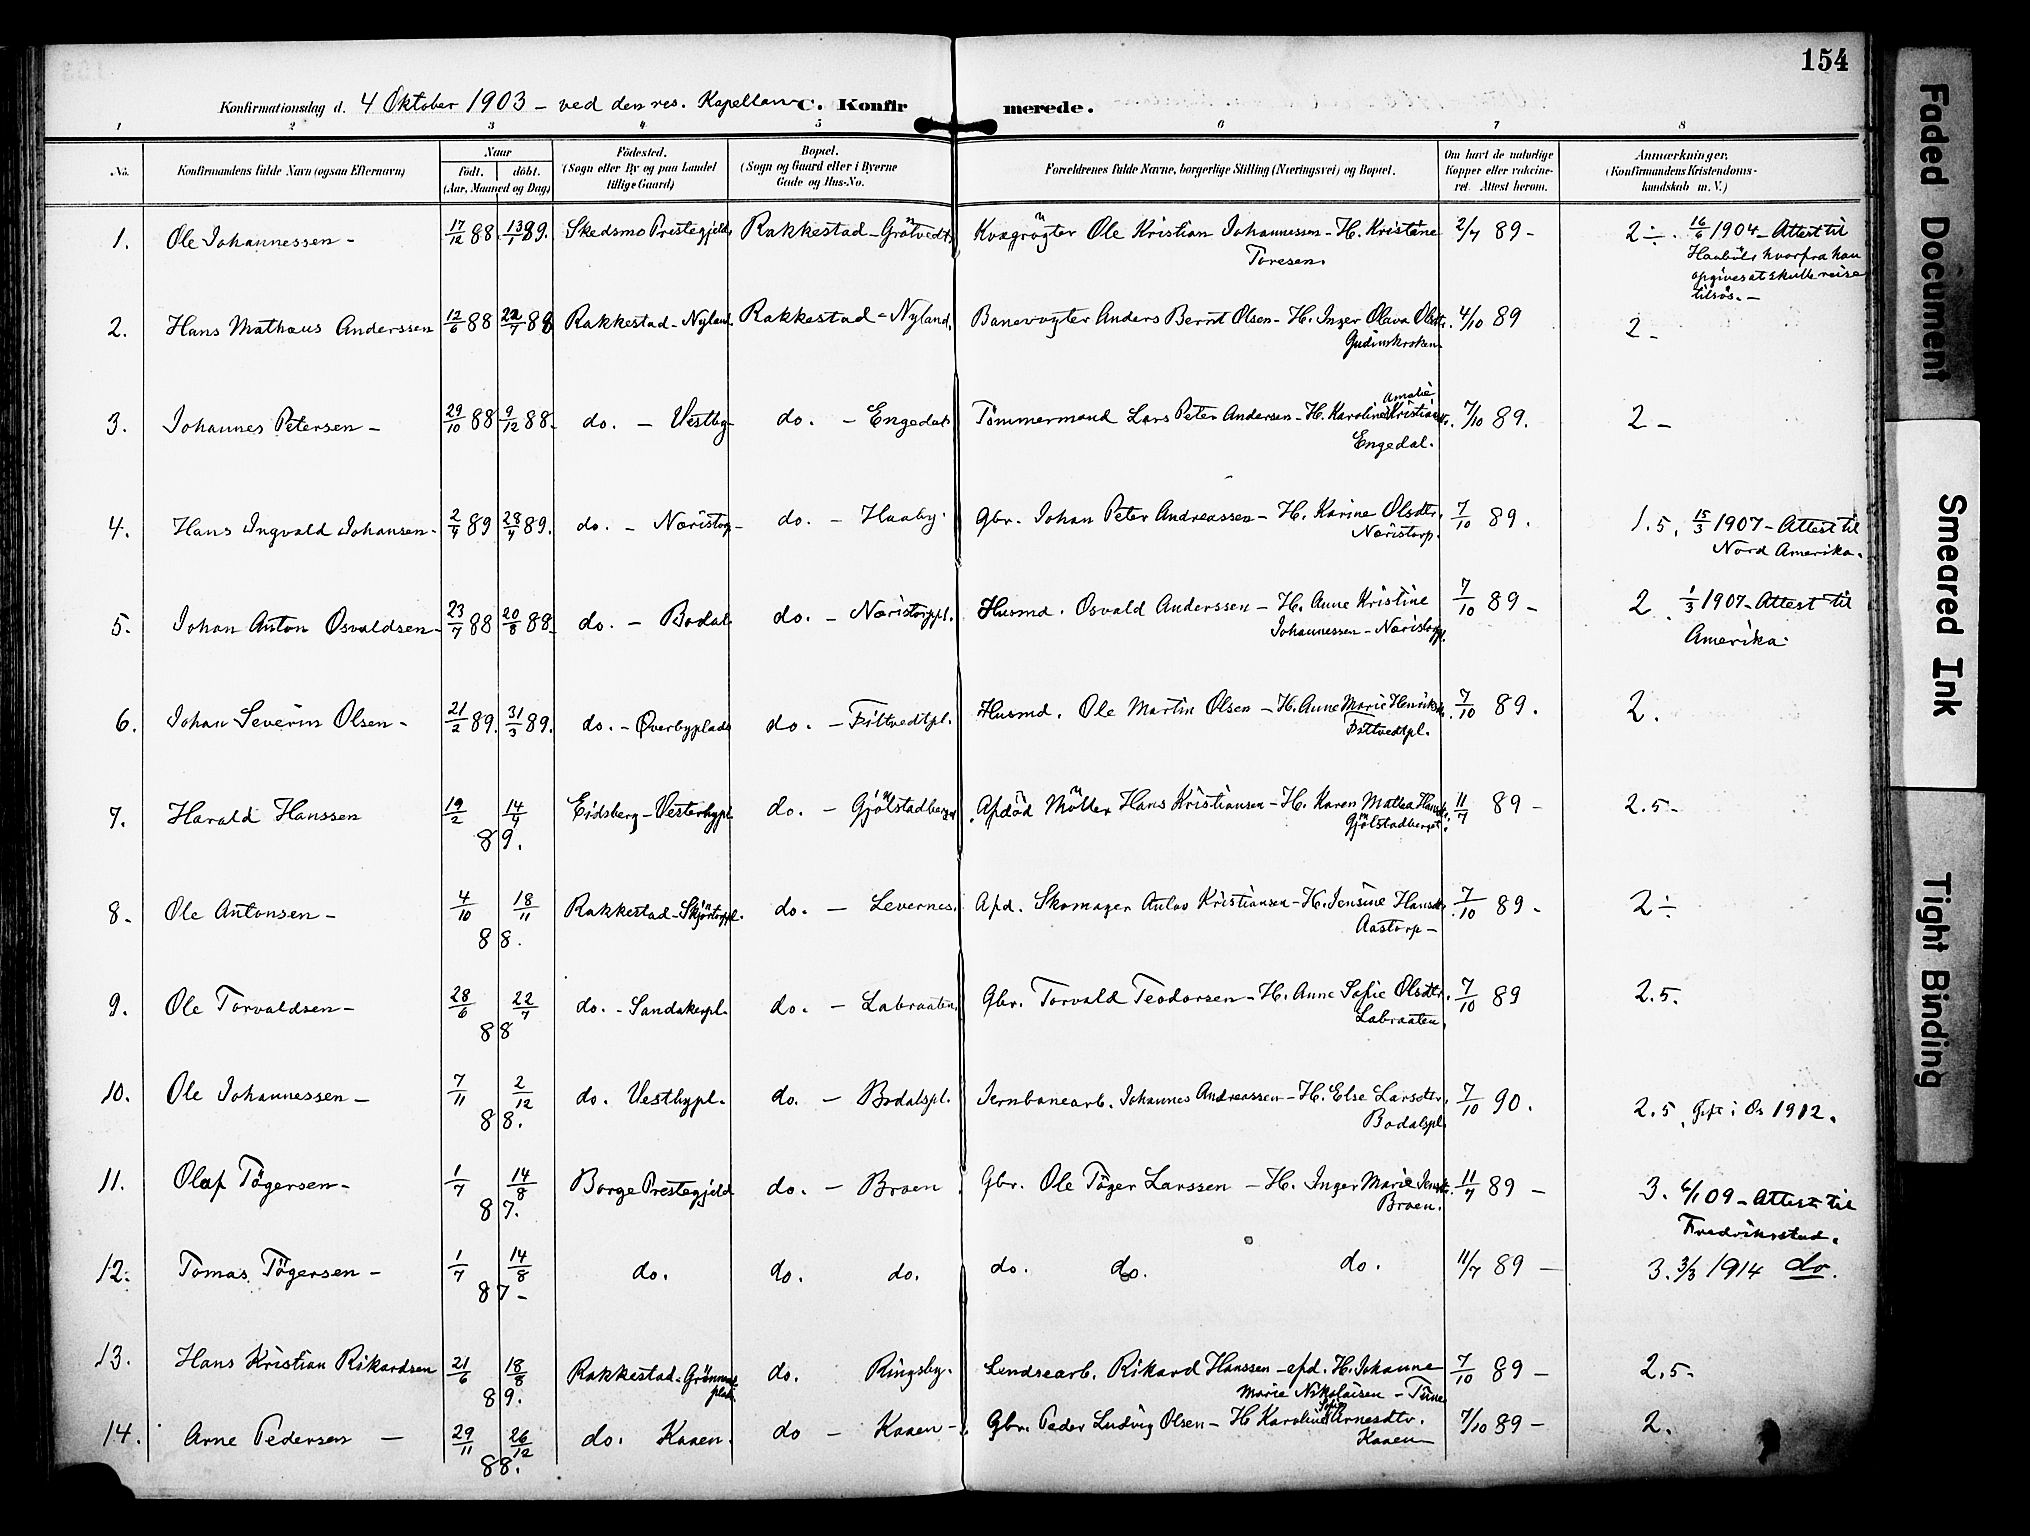 154
Konfirmationsdag d. 4 Oktober 1903 - ved den res. Kapellan C. Konfirmerede.
1 2 3 4 5 6 7 8
No. Konfirmandens fulde Navn (ogsaa Efternavn) Naar født. døbt. (Aar, Maaned og Dag) Fødested. (Sogn eller By og paa Landet tillige Gaard) Bopæl. (Sogn og Gaard eller i Byerne Gade og Hus-No. Forældrenes fulde Navne, borgerlige Stilling (Næringsvei) og Bopæl. Om havt de naturlige Kopper eller vaccineret. Attest herom. Anmærkninger. (Konfirmandens Kristendomskundskab m. V.)
1. Ole Johannessen - 17/12 88 13/1 89. Skedsmo Prestegjeld Rakkestad - Grøtvedt Kvægrøgter Ole Kristian Johannessen - H. Kristine 2/7 89 - 2 ÷. 16/6 1904 - Attest til
Toresen. Haabøl, hvorfra han
opgives at skulle reise
tilsøs. -
2. Hans Mathæus Anderssen 12/6 88 22/7 88 Rakkestad - Nyland Rakkestad - Nyland. Banevogter Anders Bernt Olsen - H. Inger Olava Olsdtr. 4/10 89 2 -
Gudimkroken.
3. Johannes Petersen - 29/10 88 9/12 88. do. - Vestby - do. - Engedal Tømmermand Lars Peter Andersen - H. Karoline Amalie Kristians. 7/10 89. 2 -
Engedal.
4. Hans Ingvald Johansen. 2/4 89 28/4 89. do. - Næristorp - do. - Haaby. Gbr. Johan Peter Andreassen - H. Karine Olsdtr. 7/10 89. 1.5. 15/3 1907 - Attest til
Næristorp. Nord Amerika.
5. Johan Anton Osvaldsen 23/7 88 20/8 88. do. - Bodal. do. - Næristorppl. Husmd. Osvald Anderssen - H. Anne Kristine 7/10 89 - 2. 1/3 1907 - Attest til
Johannessen - Næristorppl. Amerika.
6. Johan Severin Olsen - 21/2 89. 31/3 89. do. - Øverbyplads do. - Fittvedtpl. Husmd. Ole Martin Olsen - H. Anne Marie Henriks. 7/10 89. 2.
Fittvedtpl.
7. Harald Hanssen 19/2 14/4 89. Eidsberg - Vesterbypl. do. - Gjølstadberget Afdød Møller Hans Kristiansen - H. Karen Mattea Hansdtr. 11/7 89 - 2.5 -
Gjølstadberget.
8. Ole Antonsen - 4/10 18/11 88. Rakkestad - Skjørtorppl. do. - Levernes. Afd. Skomager Anton Kristiansen - H. Jensine Hansdtr. 7/10 89 - 2 ÷
Aastorp -
9. Ole Torvaldsen - 28/6 22/7 88 do. - Sandakerpl. do. - Labraaten Gbr. Torvald Teodorsen - H. Anne Sofie Olsdtr. 7/10 89 2.5.
Labraaten.
10. Ole Johannessen - 7/11 2/12 88. do. Vestbypl. do. - Bodalspl. Jernbanearb. Johannes Andreassen - H. Else Larsdtr. 7/10 90. 2.5. Gift i Os 1912.
Bodalspl.
11. Olaf Tøgersen - 1/7 14/8 87. Borge Prestegjeld do. - Broen. Gbr. Ole Tøger Larssen - H. Inger Marie Jens. 11/7 89 - 3. 6/1 09 - Attest til
Broen. Fredrikstad.
12. Tomas Tøgersen - 1/7 14/8 87 - do. do. do. do. do. do. 11/7 89 - 3. 3/3 1914 do.
13. Hans Kristian Rikardsen 21/6 18/8 89. Rakkestad - Grønnes plads. do. Ringsby. Lendsearb. Rikard Hanssen - afd. H. Johanne 7/10 89 - 2.5 -
Marie Nikolaisen - Tine
14. Arne Pedersen - 29/11 26/12 88. do. Kaaen. do - Kaaen - Gbr. Peder Ludvig Olsen - H Karoline Sofie Arnesdtr. 7/10 89 - 2.
Kaaen -
Faded Document
Smeared Ink
Tight Binding